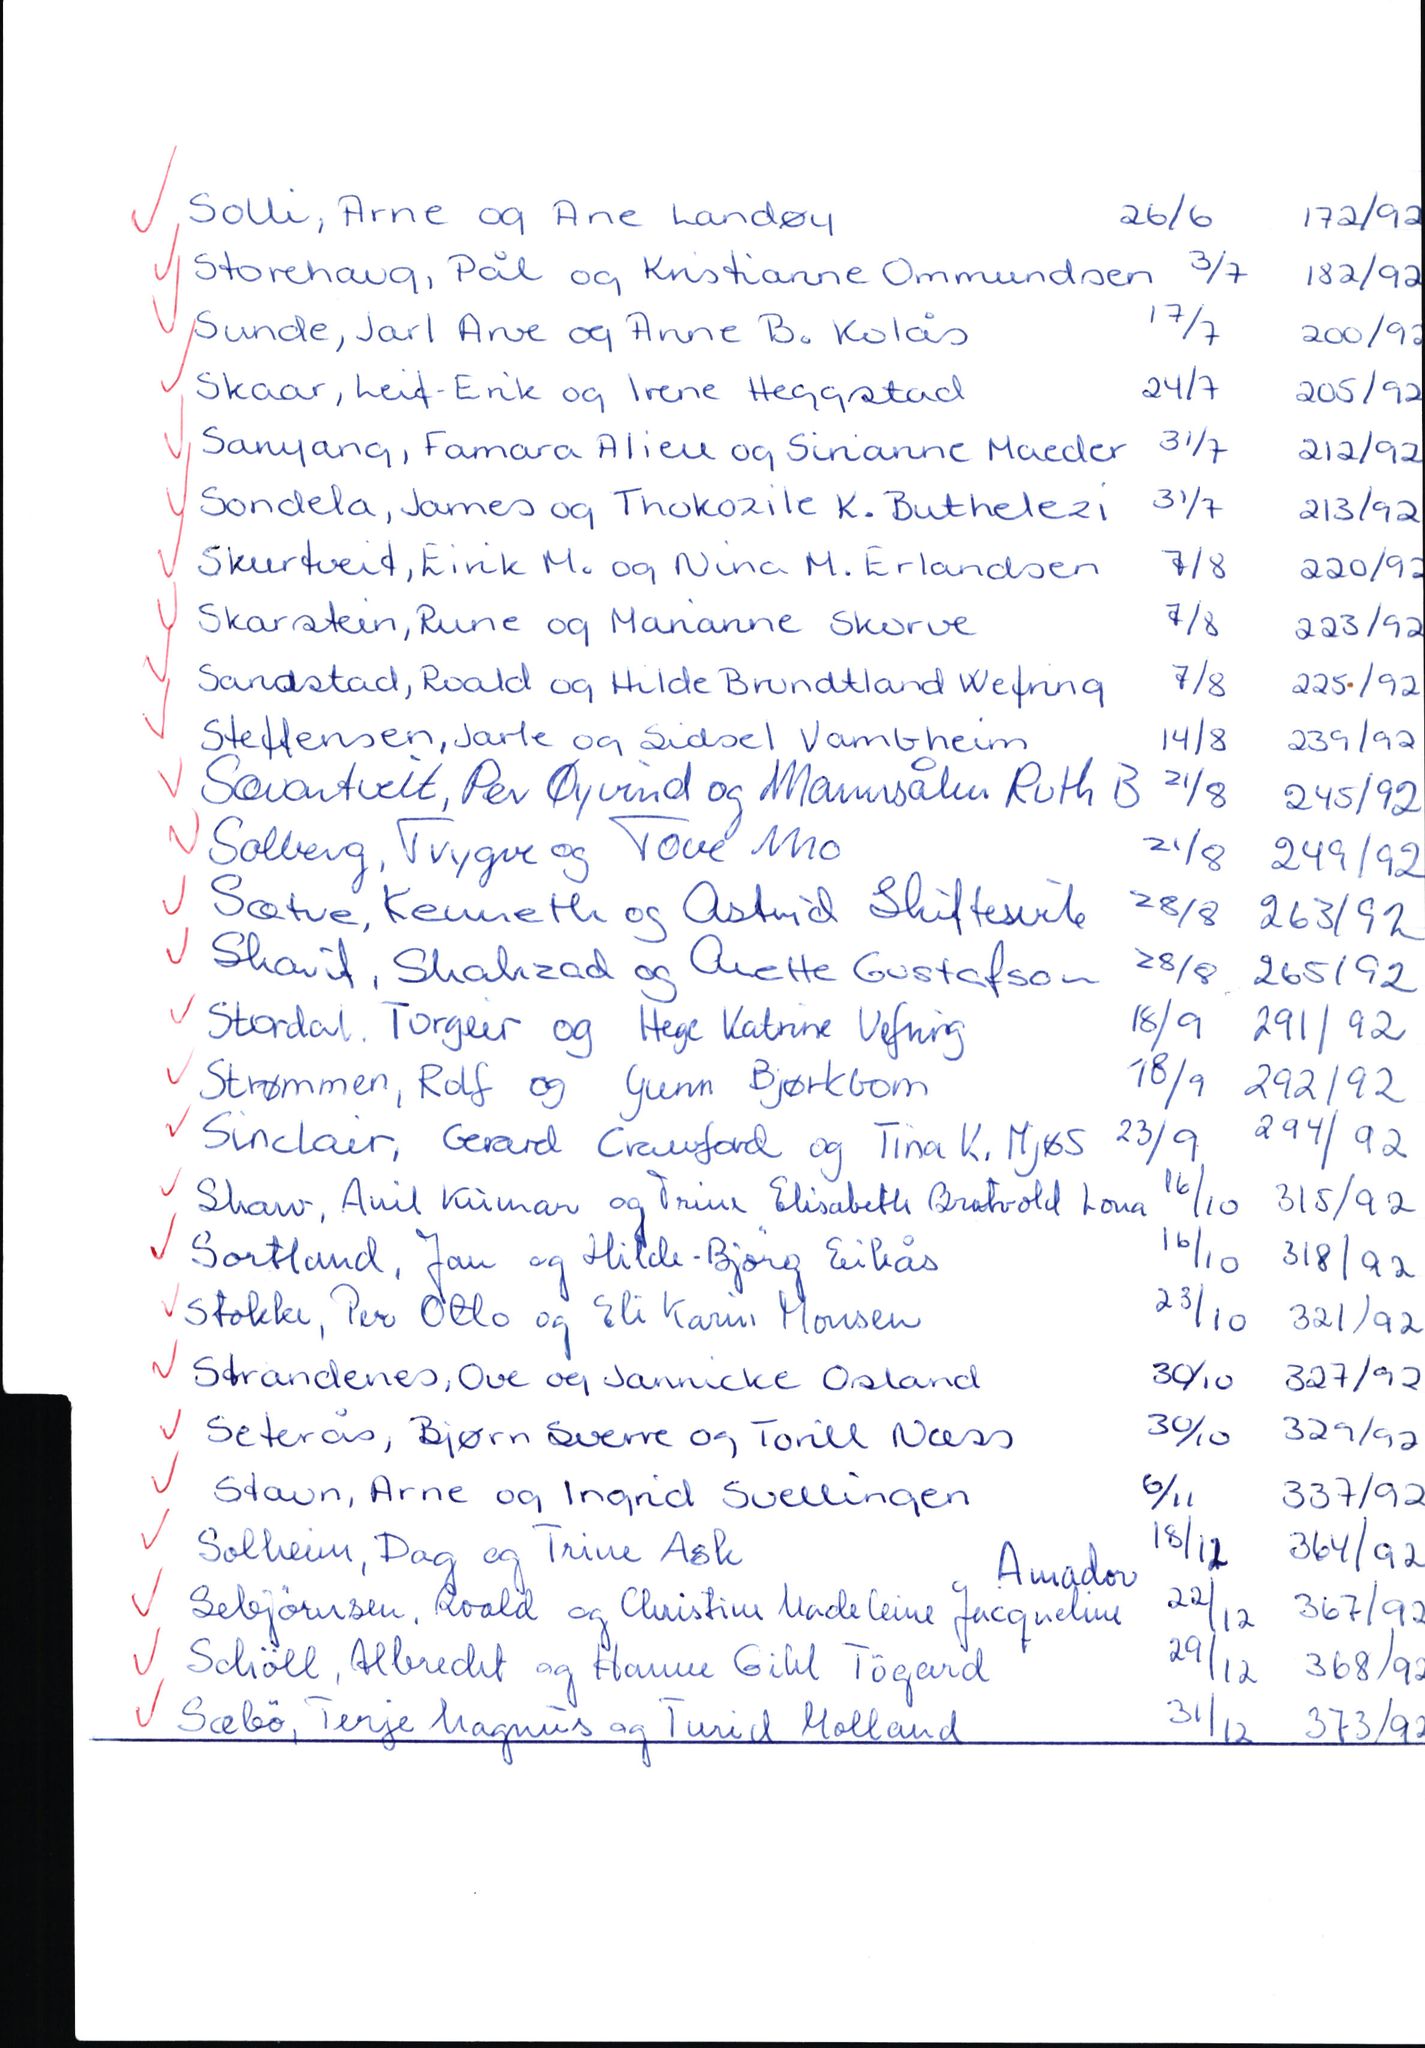 Solli, Arne og Ane Landøy 26/6 172/92
Storehaug, Pål og Kristianne Ommundsen 3/7 182/92
Sunde, Jarl Arve og Anne B. Kolås 17/7 200/92
Skaar, Leif-Erik og Irene Heggstad 24/7 205/92
Sanyang, Famara Alieu og Sirianne Maeder 31/7 212/92
Sondela, James og Thokozile K. Buthelezi 31/7 213/92
Skurtveit, Eirik M. og Nina M. Erlandsen 7/8 220/92
Skarstein, Rune og Marianne Skorve 7/8 223/92
Sandstad, Roald og Hilde Brundtland Wefring 7/8 225/92
Steffensen, Jarle og Sidsel Vambheim 14/8 239/92
Sævartveit, Per Øyvind og Mannsåker Ruth B 21/8 245/92
Solberg, Trygve og Tove Mo 21/8 249/92
Sætve, Kenneth og Astrid Skiftesvik 28/8 263/92
Sharif, Shahzad og Anette Gustafson 28/8 265/92
Stordal. Torgeir og Hege Katrine Vefring 18/9 291/92
Strømmen, Rolf og Gunn Bjørkbom 18/9 292/92
Sinclair, Gerard Crawford og Tina K. Mjøs 23/9 294/92
Shaw, Anil Kumar og Trine Elisabeth Bratvold Lona 16/10 315/92
Sortland, Jan og Hilde-Bjørg Eikås 16/10 318/92
Stokke, Per Otto og Eli Karin Monsen 23/10 321/92
Strandenes, Ove og Jannicke Osland 30/10 327/92
Seterås, Bjørn Sverre og Torill Næss 30/10 329/92
Stavn, Arne og Ingrid Svellingen 6/11 337/92
Solheim, Dag og Trine Ask 18/12 364/92
Amador
Sebjörnsen, Roald og Christine Madeleine Jacqueline 22/12 367/92
Schöll, Albrecht og Hanne Gihl Tögard 29/12 368/92
Sæbö, Terje Magnus og Turid Molland 31/12 373/92